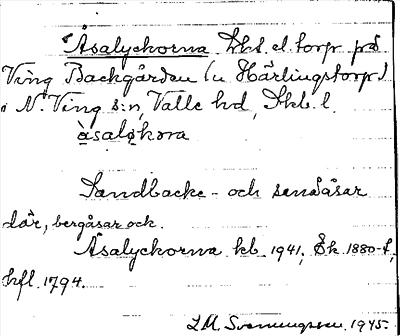 Åsalyckorna Lht. el. torp på
Ving Backgården (u Härlingstorp)
i N. Ving s:n, Valle hd, Skb. l.
àsaløkơra
Sandbacke- och sandåsar
där, bergåsar ock.
Åsalyckorna kb. 1941, Ek. 1880-t,
hfl. 1794.
L M. Svenungsson 1945.